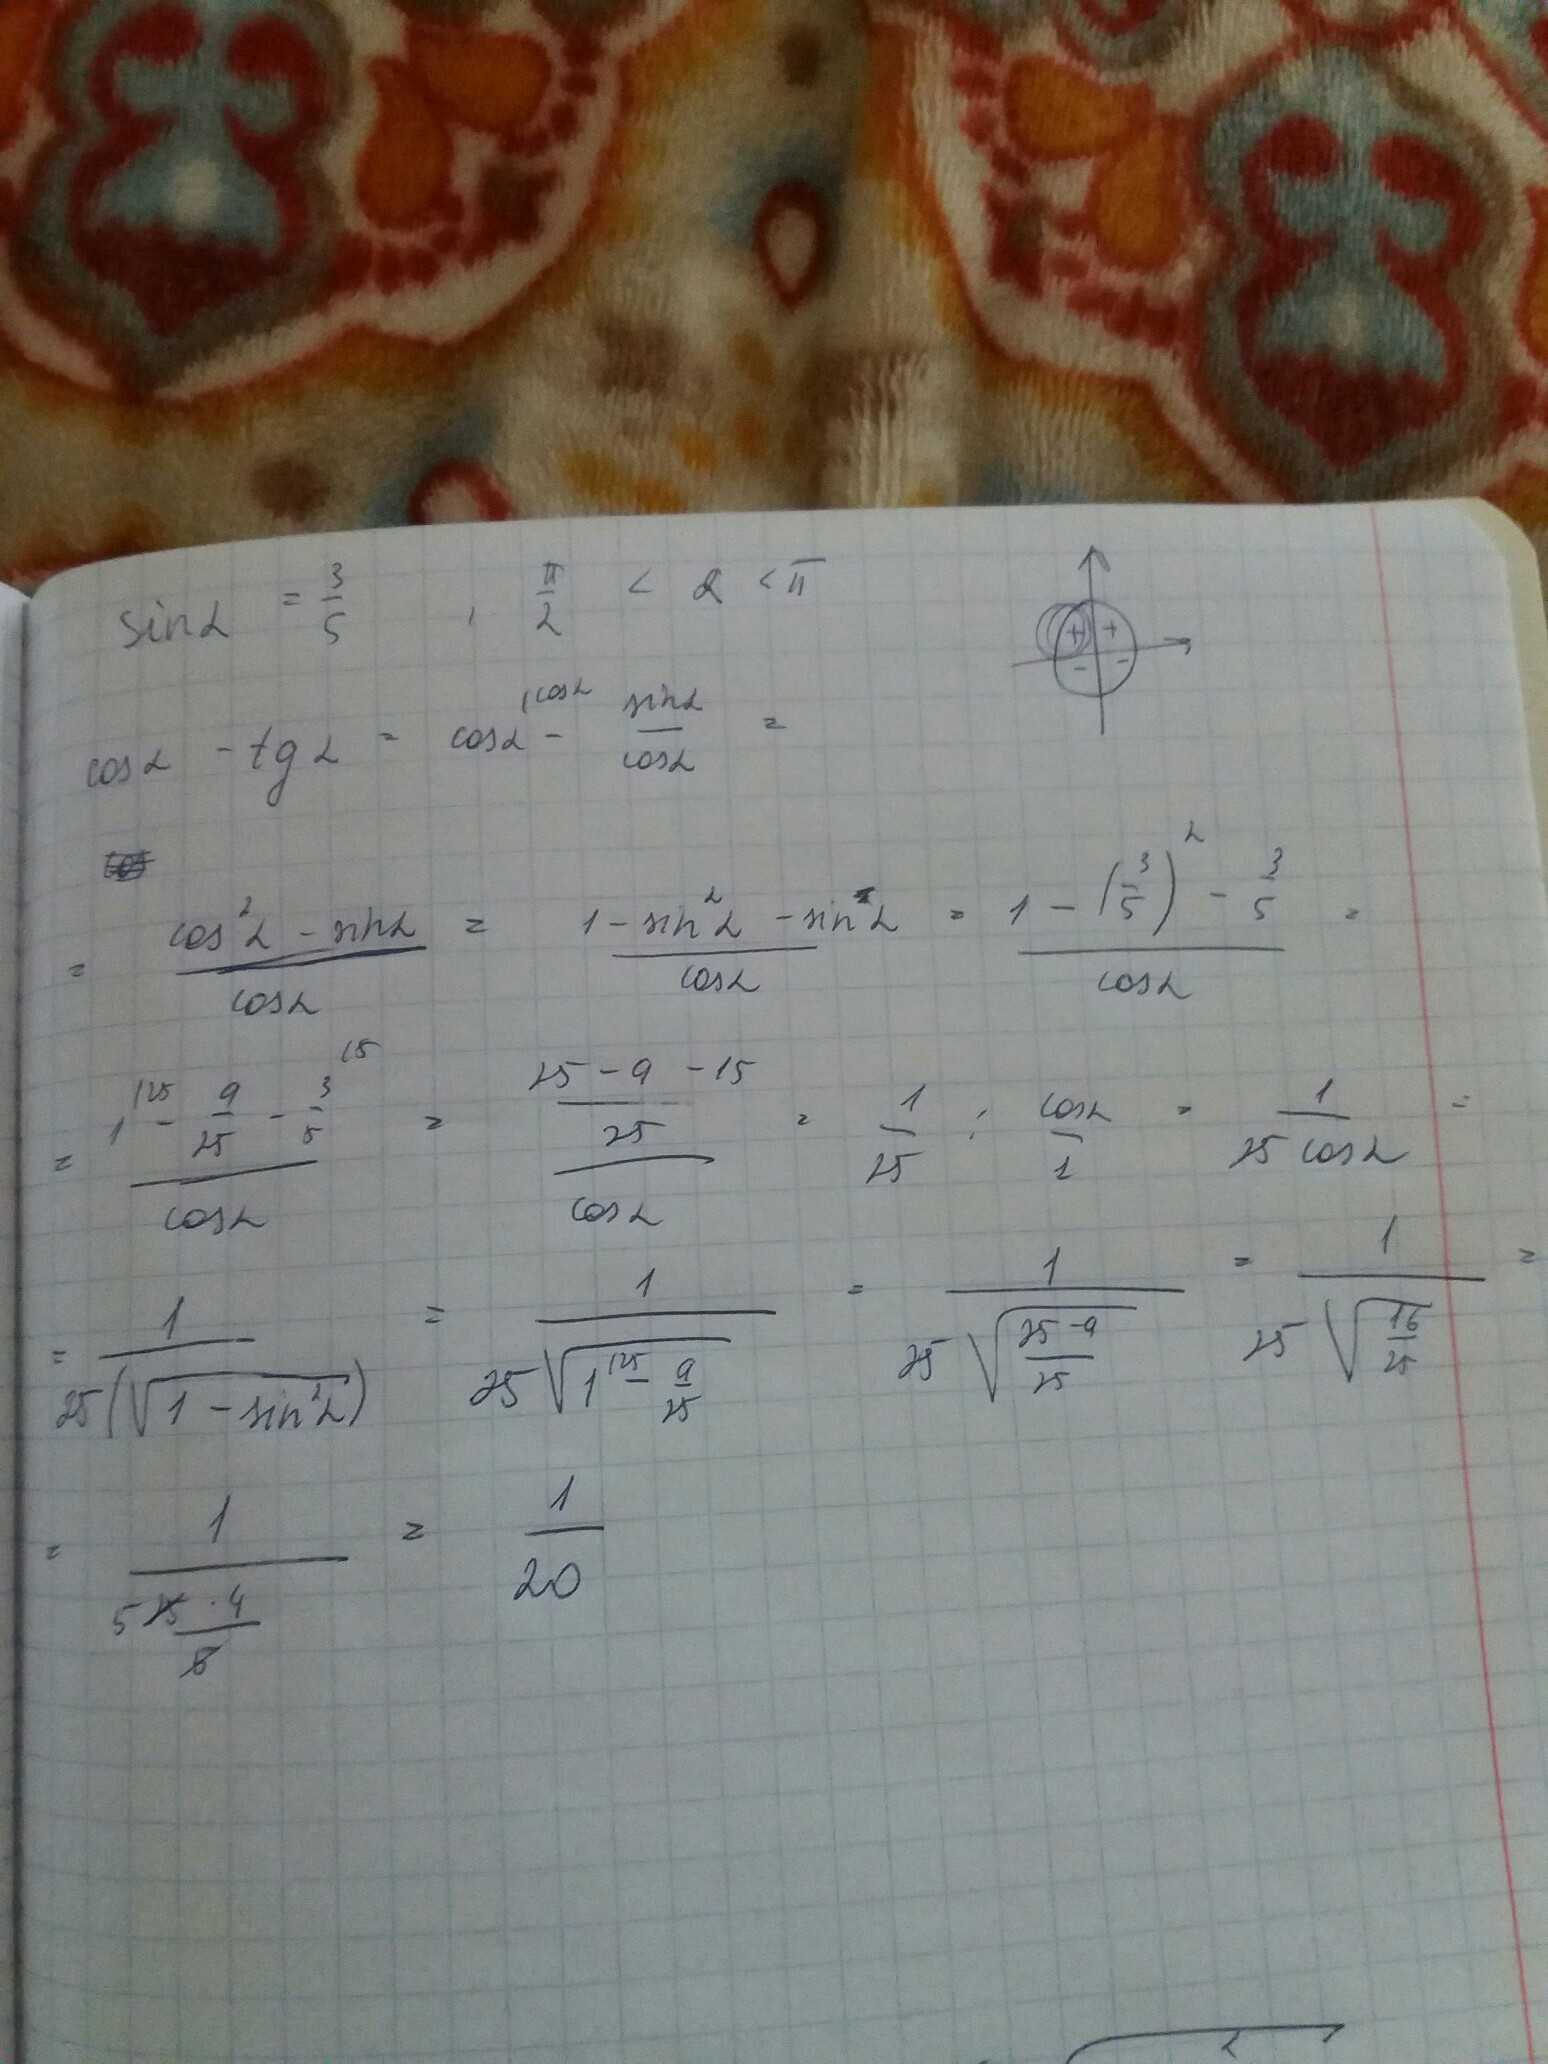 sinα = 3/5 , π/2 < α < π
+ +
− −
cosα − tgα = cosα^{\cosα} − sinα/cosα =
= (cos²α − sinα)/cosα = (1 − sin²α − sinα)/cosα = (1 − (3/5)² − 3/5)/cosα =
= (1^{\25} − 9/25 − 3/5^{\5})/cosα = ((25 − 9 − 15)/25)/cosα = 1/25 : cosα/1 = 1/(25 cosα) =
= 1/(25(√(1 − sin²α))) = 1/(25√(1^{\25} − 9/25)) = 1/(25√((25 − 9)/25)) = 1/(25√(16/25)) =
= 1/(5 25 · 4/5) = 1/20